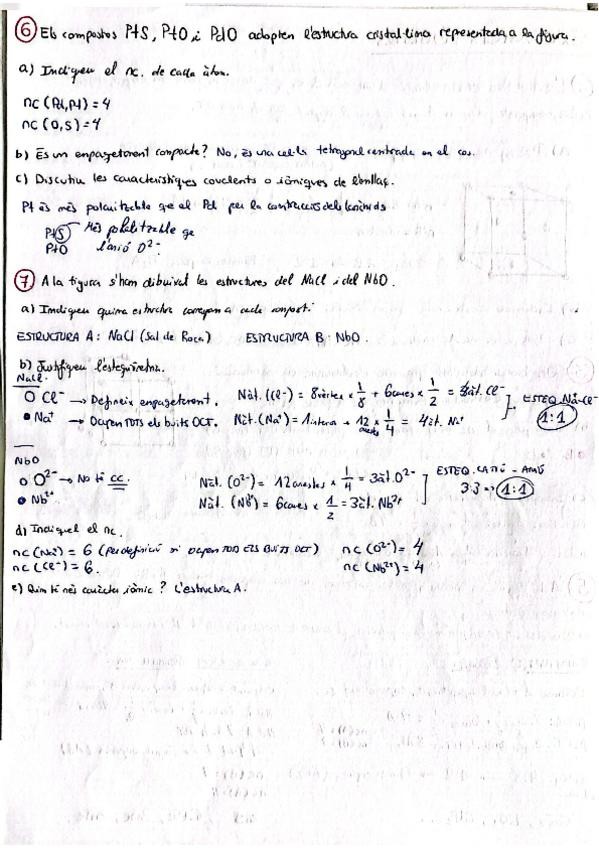 6 Els compostos PtS, PtO i PdO adopten l'estructura cristal·lina representada a la figura.
a) Indiqueu el nc. de cada àtom.
nc (Pd, Pt) = 4
nc (O, S) = 4
b) És un empaquetament compacte? No, és una cel·la tetragonal centrada en el cos.
c) Discutiu les característiques covalents o iòniques de l'enllaç.
Pt és més polaritzable que el Pd per la contracció dels lantànids
PtS Més polaritzable que
PtO l'anió O²⁻
7 A la figura s'han dibuixat les estructures del NaCl i del NbO.
a) Indiqueu quina estructura correspon a cada compost:
ESTRUCTURA A: NaCl (Sal de Roca) ESTRUCTURA B: NbO.
b) Justifiqueu l'estequiometria.
NaCl
O Cl⁻ → Defineix empaquetament. Nàt. (Cl⁻) = 8 vèrtex × 1/8 + 6 cares × 1/2 = àt. Cl⁻
● Na⁺ → Ocupen TOTS els buits OCT. Nàt. (Na⁺) = 1 intern + 12 arestes × 1/4 = 4 àt. Na⁺
ESTEQ. Na-Cl 1:1
NbO
O O²⁻ → No té cc. Nàt. (O²⁻) = 12 arestes × 1/4 = 3 àt. O²⁻
● Nb²⁺. Nàt. (Nb²⁺) = 6 cares × 1/2 = 3 àt. Nb²⁺
ESTEQ. CATIÓ - ANIÓ
3:3 => 1:1
d) Indiqueu el nc.
nc (Na⁺) = 6 (Per definició si ocupen TOTS ELS BUITS OCT) nc (O²⁻) = 4
nc (Cl⁻) = 6. nc (Nb²⁺) = 4
e) Quin té més caràcter iònic? L'estructura A.